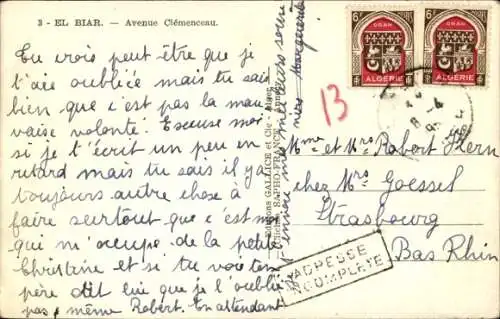 3 - EL BIAR. - Avenue Clémenceau.
Tu crois peut être que je
t'aie oubliée mais tu sais
bien que c'est pas la mau
vaise volonté. Excuse moi
si je t'écrit un peu en
retard mais tu sais il y a
toujours autre chose à
faire surtout que c'est moi
qui m'occupe de la petite
Christine et si tu vois ton
père dit lui que je l'oublie
pas, même Robert. En attendant
meilleurs
Marguerite
Editions GALLICE et Cie - Alger
SAPHO-FRANCE
6F
ORAN
ALGERIE
6F
ORAN
ALGERIE
13
Mme et Mrs Robert Kern
chez Mrs Goessel
Strasbourg
Bas Rhin
ADRESSE
INCOMPLETE